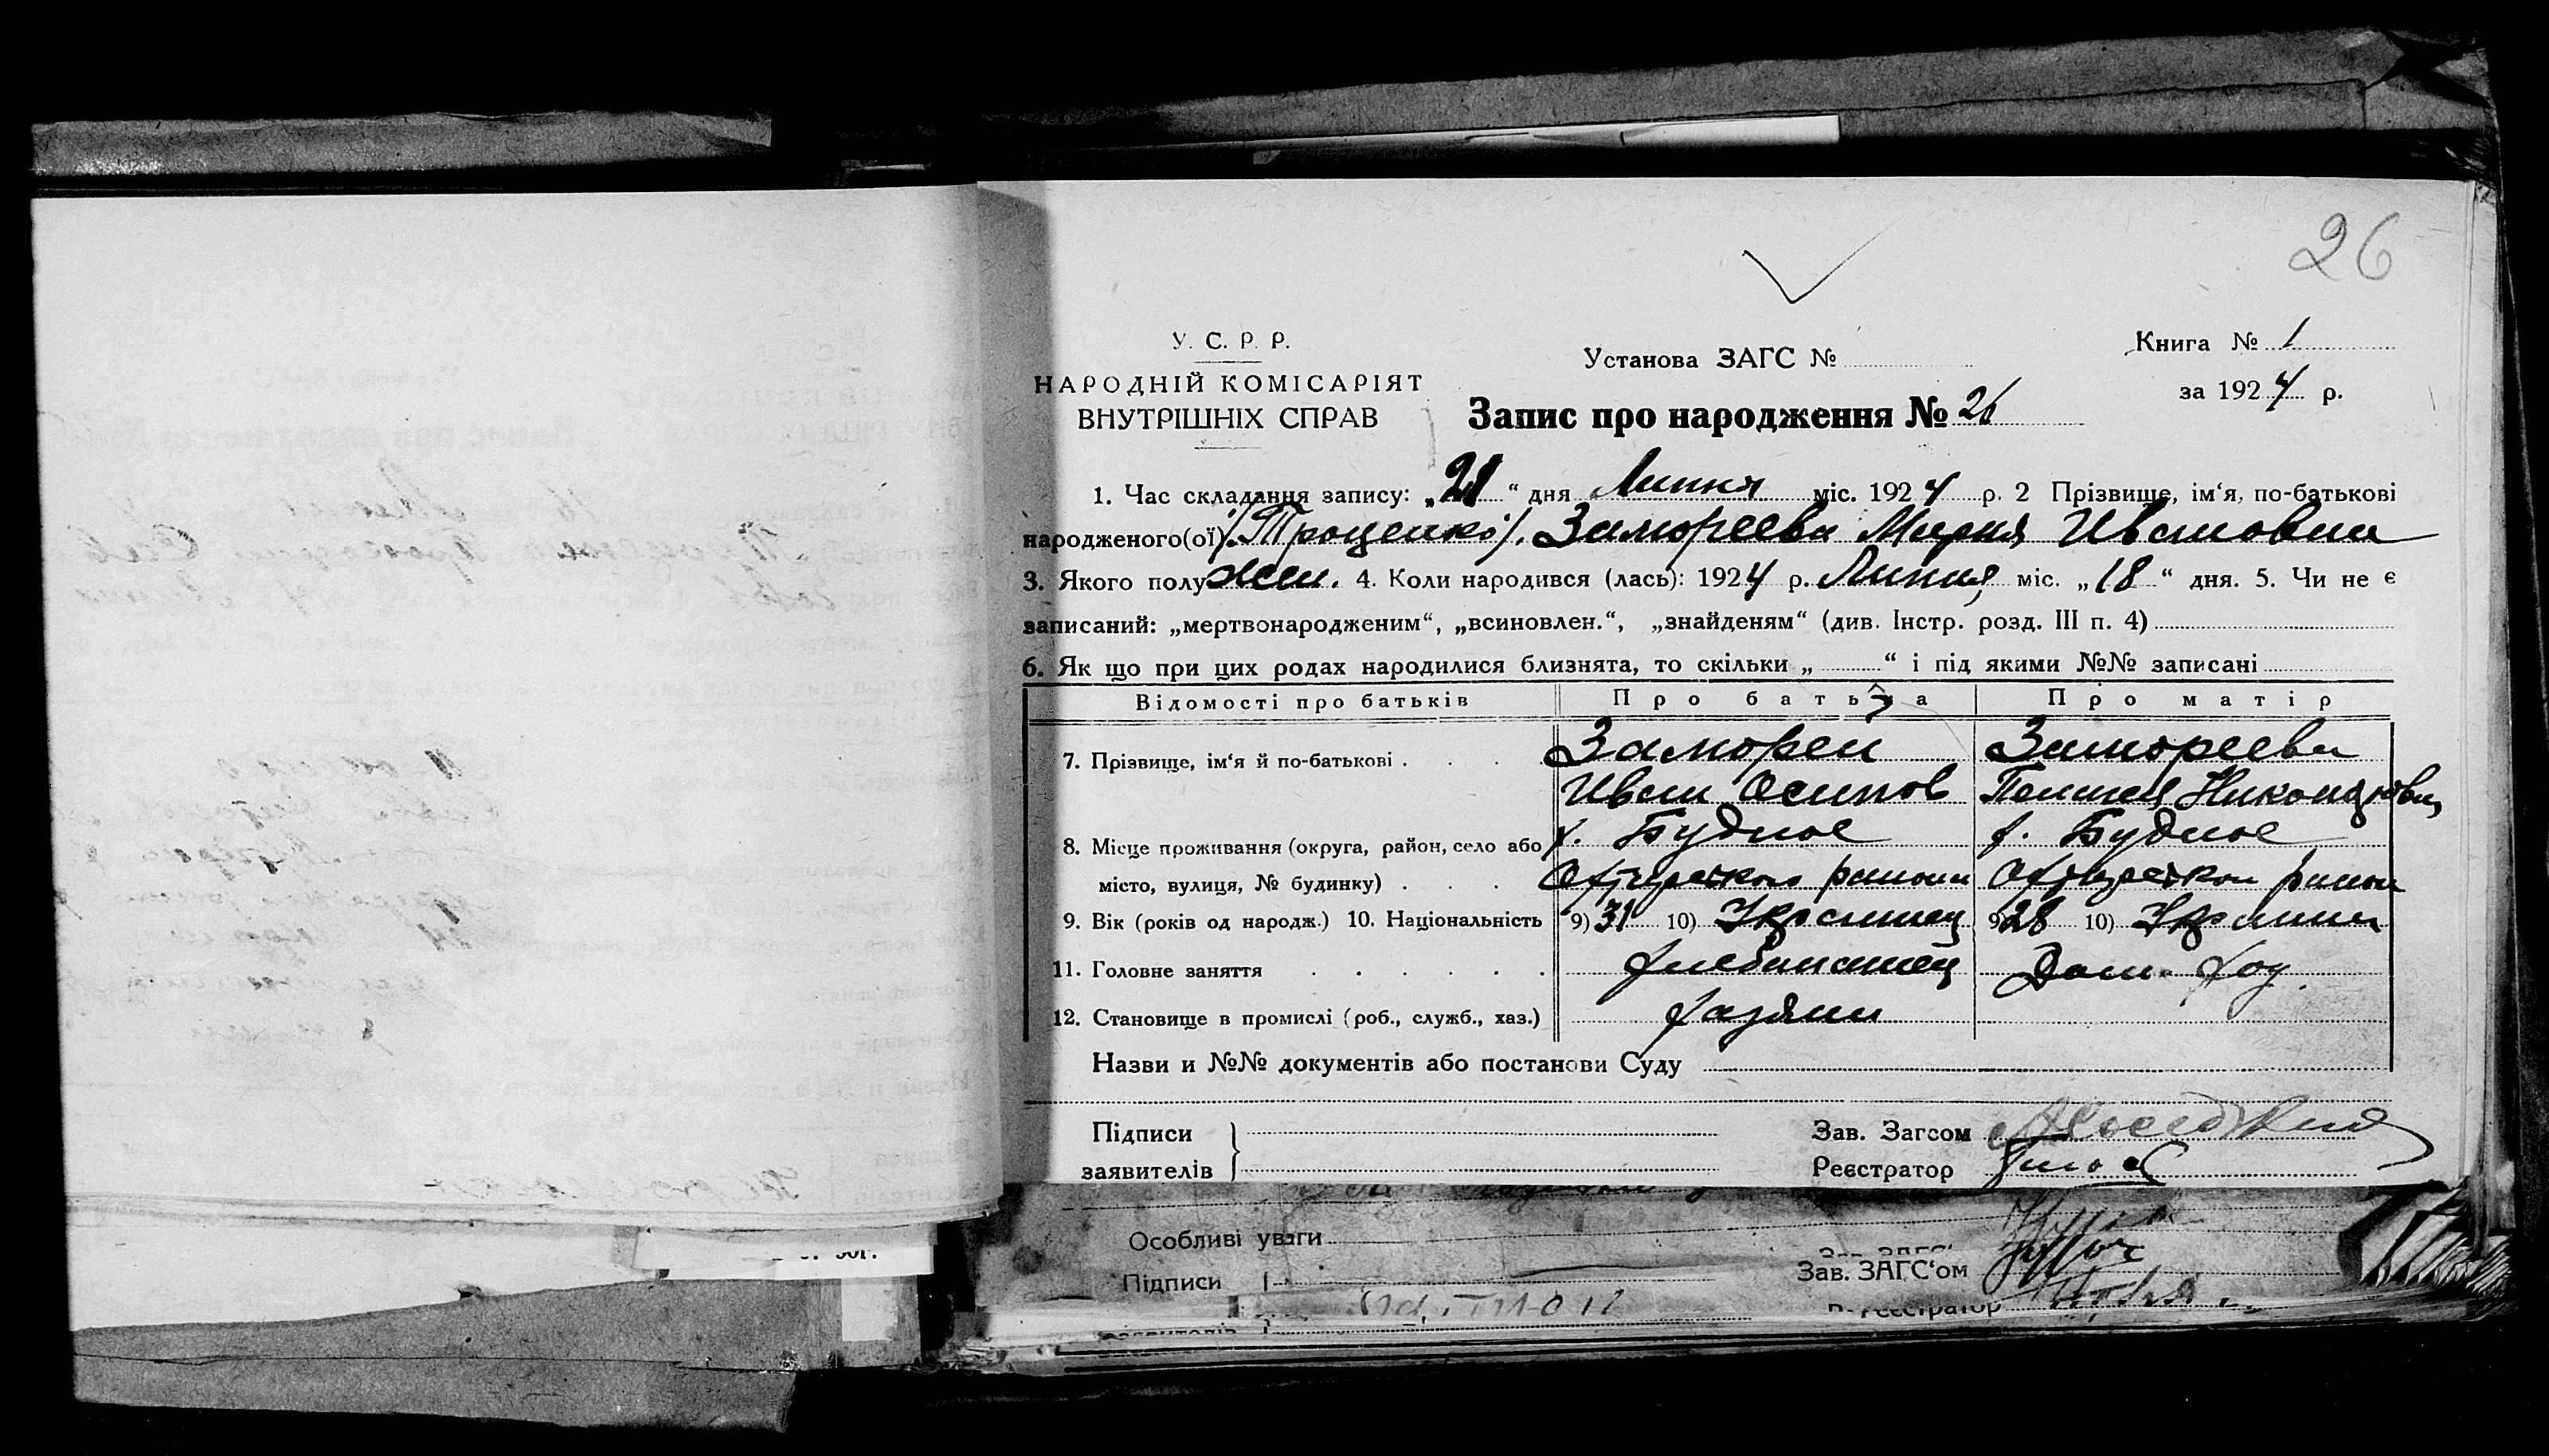 26
У. С. Р. Р.
НАРОДНІЙ КОМІСАРІЯТ
ВНУТРІШНІХ СПРАВ
Установа ЗАГС №
Книга № 1
за 1924 р.
Запис про народження № 26
1. Час складання запису: „21“ дня Липня міс. 1924 р. 2 Прізвище, ім‘я, по-батькові
народженого(ої) /Троценко/. Замореева Мария Ивановна
3. Якого полу жен. 4. Коли народився (лась): 1924 р. Липня, міс. „18“ дня. 5. Чи не є
записаний: „мертвонародженим“, „всиновлен.“, „знайденям“ (див. Інстр. розд. III п. 4)
6. Як що при цих родах народилися близнята, то скільки „ “ і під якими №№ записані
Відомості про батьків Про батька Про матір
7. Прізвище, ім‘я й по-батькові . . . . Заморей Замореева
Иван Осипов
8. Місце проживання (округа, район, село або х. Будное х. Будное
місто, вулиця, № будинку) . . . района района
9. Вік (років од народж.) 10. Національність 9) 31 10) Украинец 9) 28 10)
11. Головне заняття . . . . . . Хлебопашец Дом. хоз.
12. Становище в промислі (роб., служб., хаз.) хозяин
Назви и №№ документів або постанови Суду
Підписи
заявителів
Зав. Загсом
Реєстратор
Особливі уваги
Підписи
Зав. ЗАГС‘ом
Реєстратор